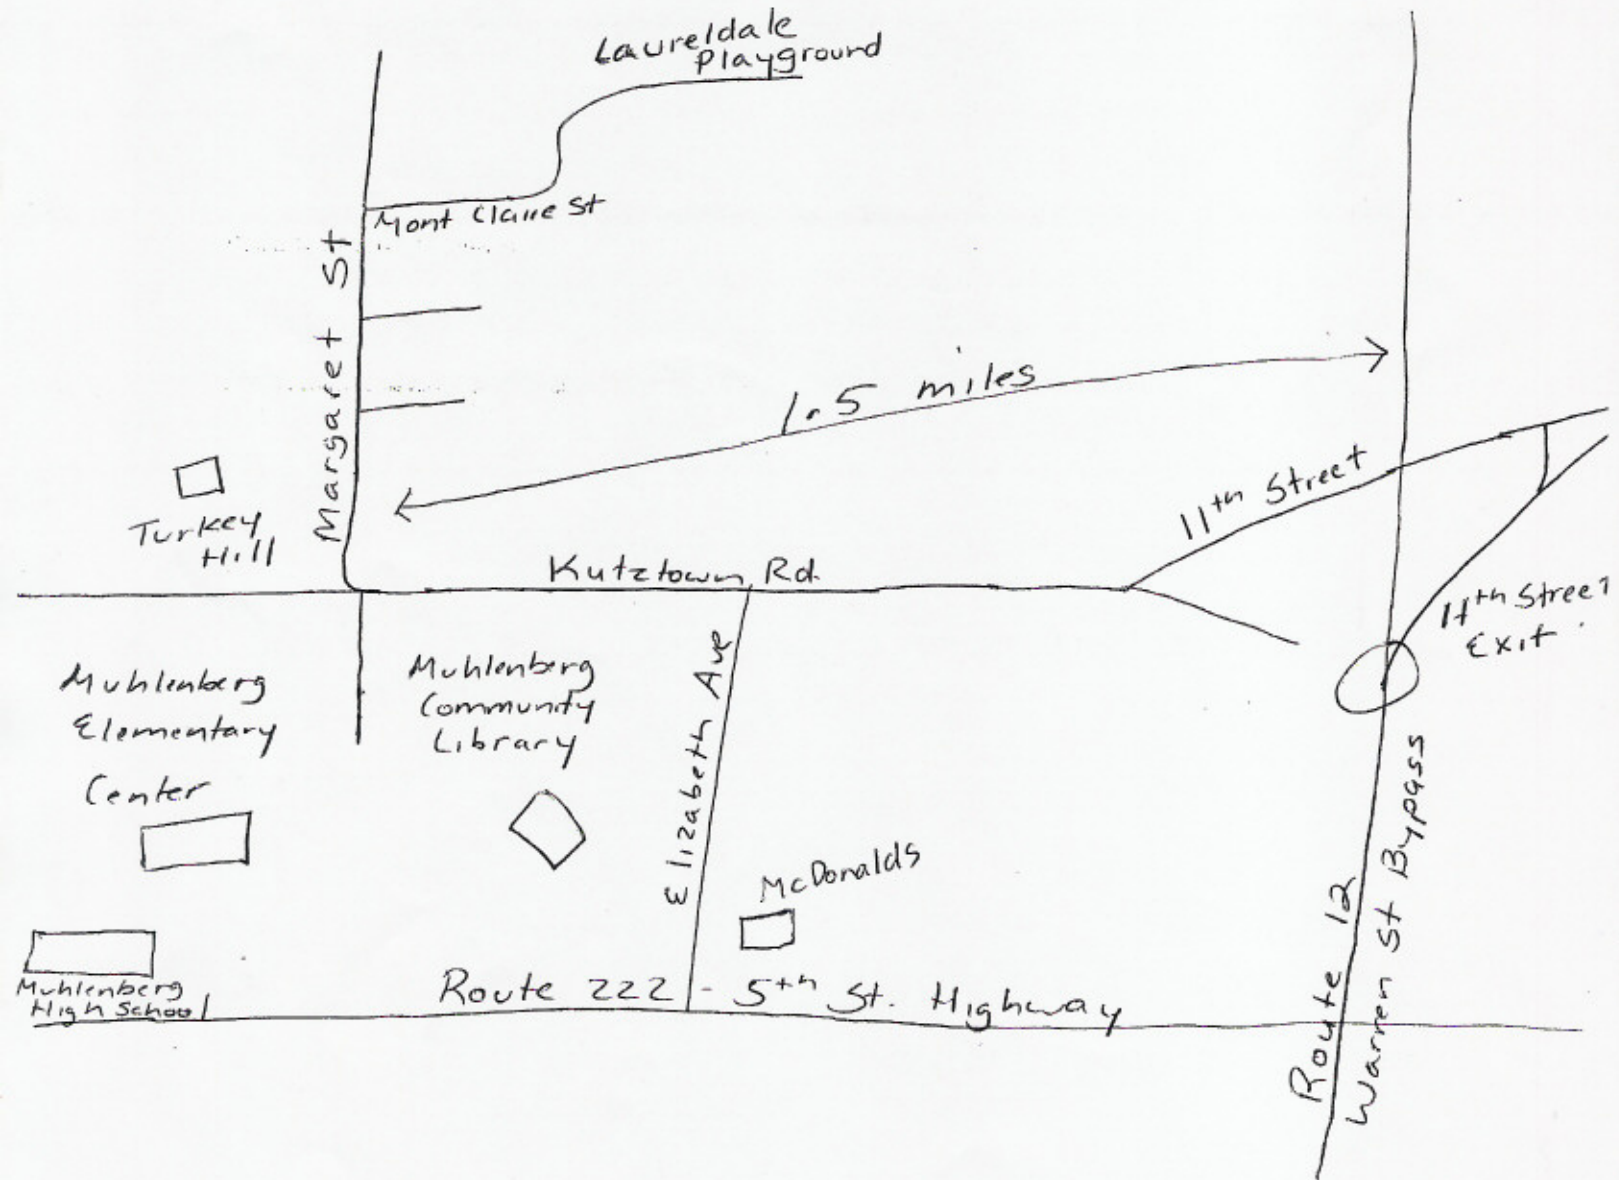 Laureldale
Playground
Mont Claire St
Margaret St
1.5 miles
11th Street
Turkey
Hill
Kutztown Rd.
11th Street
Exit
Muhlenberg
Elementary
Center
Muhlenberg
Community
Library
Elizabeth Ave
McDonalds
Route 12
Warren St Bypass
Muhlenberg
High School
Route 222 - 5th St. Highway